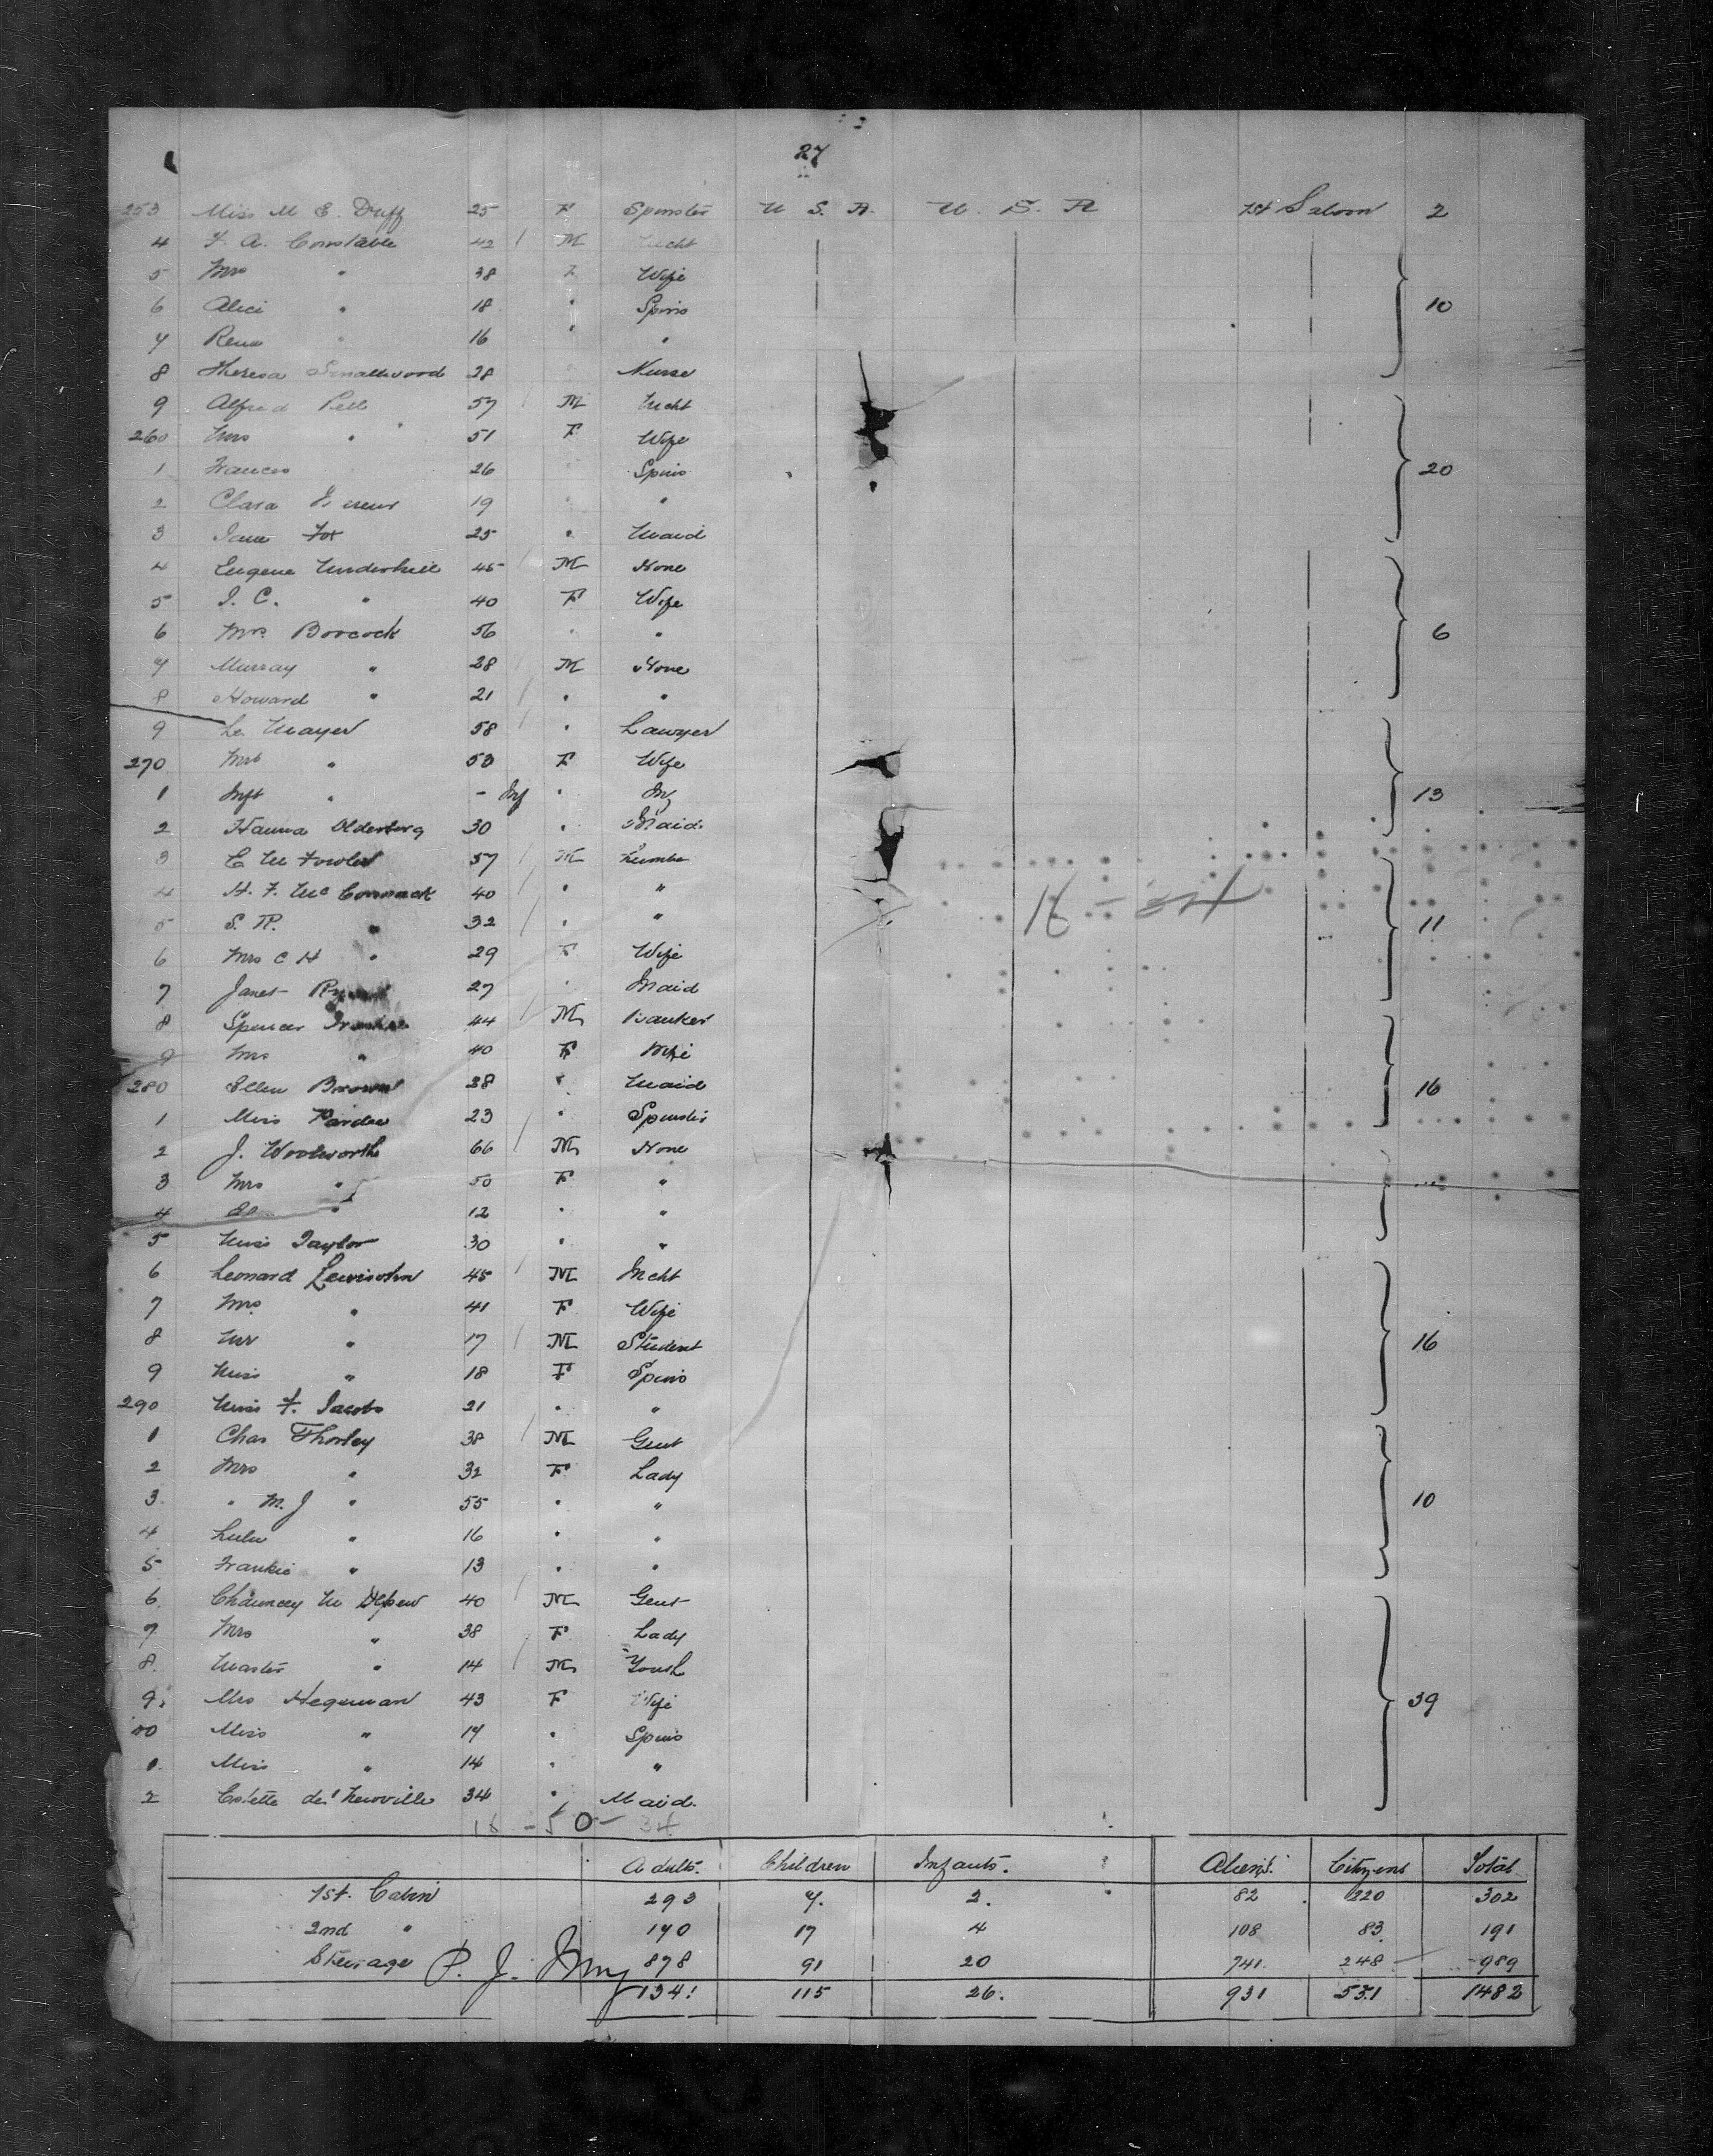 27
253 Miss M E. Duff 25 F Spinster U S. A. U. S. A 1st Saloon 2
4 F. A. Constable 42 / M Mcht
5 Mrs " 38 F Wife
6 Alice " 18 " Spins 10
7 " 16 " "
8 Theresa Smallwood 28 Nurse
9 Alfred Pell 57 M Mcht
260 Mrs " 51 F Wife
1 Frances 26 Spins 20
2 Clara 19 " "
3 Jane Fox 25 " Maid
4 Eugene Underhill 45 / M None
5 J. C. " 40 F Wife
6 Mrs Borcock 56 " " 6
7 Murray " 28 / M None
8 Howard " 21 / " "
9 L. Mayer 58 / " Lawyer
270 Mrs " 53 F Wife
1 Inft " - Inf " Inf 13
2 Hanna Olderberg 30 " Maid
3 E M Fowler 57 / M Lumber
4 H. F. McCormack 40 / " "
5 S. R. " 32 / " " 11
6 Mrs C H " 29 F Wife
7 Janet 27 " Maid
8 Spencer 44 / M Banker
9 Mrs " 40 F Wife
280 Ellen Brown 38 " Maid 16
1 Miss Pardee 23 " Spinster
2 J. Woolworth 66 / M None
3 Mrs " 50 F "
4 " 12 " "
5 Miss Taylor 30 " "
6 Leonard Lewisohn 45 / M Mcht
7 Mrs " 41 F Wife
8 Mr " 17 / M Student 16
9 Miss " 18 F Spins
290 Miss F. Jacobs 21 " "
1 Chas Thorley 38 / M Gent
2 Mrs " 32 F Lady
3. " M. J " 55 " " 10
4 Lulu " 16 " "
5 Frankie " 13 " "
6. Chauncey M Depew 40 / M Gent
7. Mrs " 38 F Lady
8. Master " 14 / M Youth
9. Mrs Hegeman 43 F Wife 39
00 Miss " 17 " Spins
1. Miss " 14 " "
2 Colette de Neuville 34 " Maid.
16 - 50 - 34
Adults. Children Infants. Aliens. Citizens Total
1st. Cabin 293 7. 2. 82 220 302
2nd " 170 17 4 108 83 191
Steerage 878 91 20 741 248 989
1341 115 26. 931 551 1482